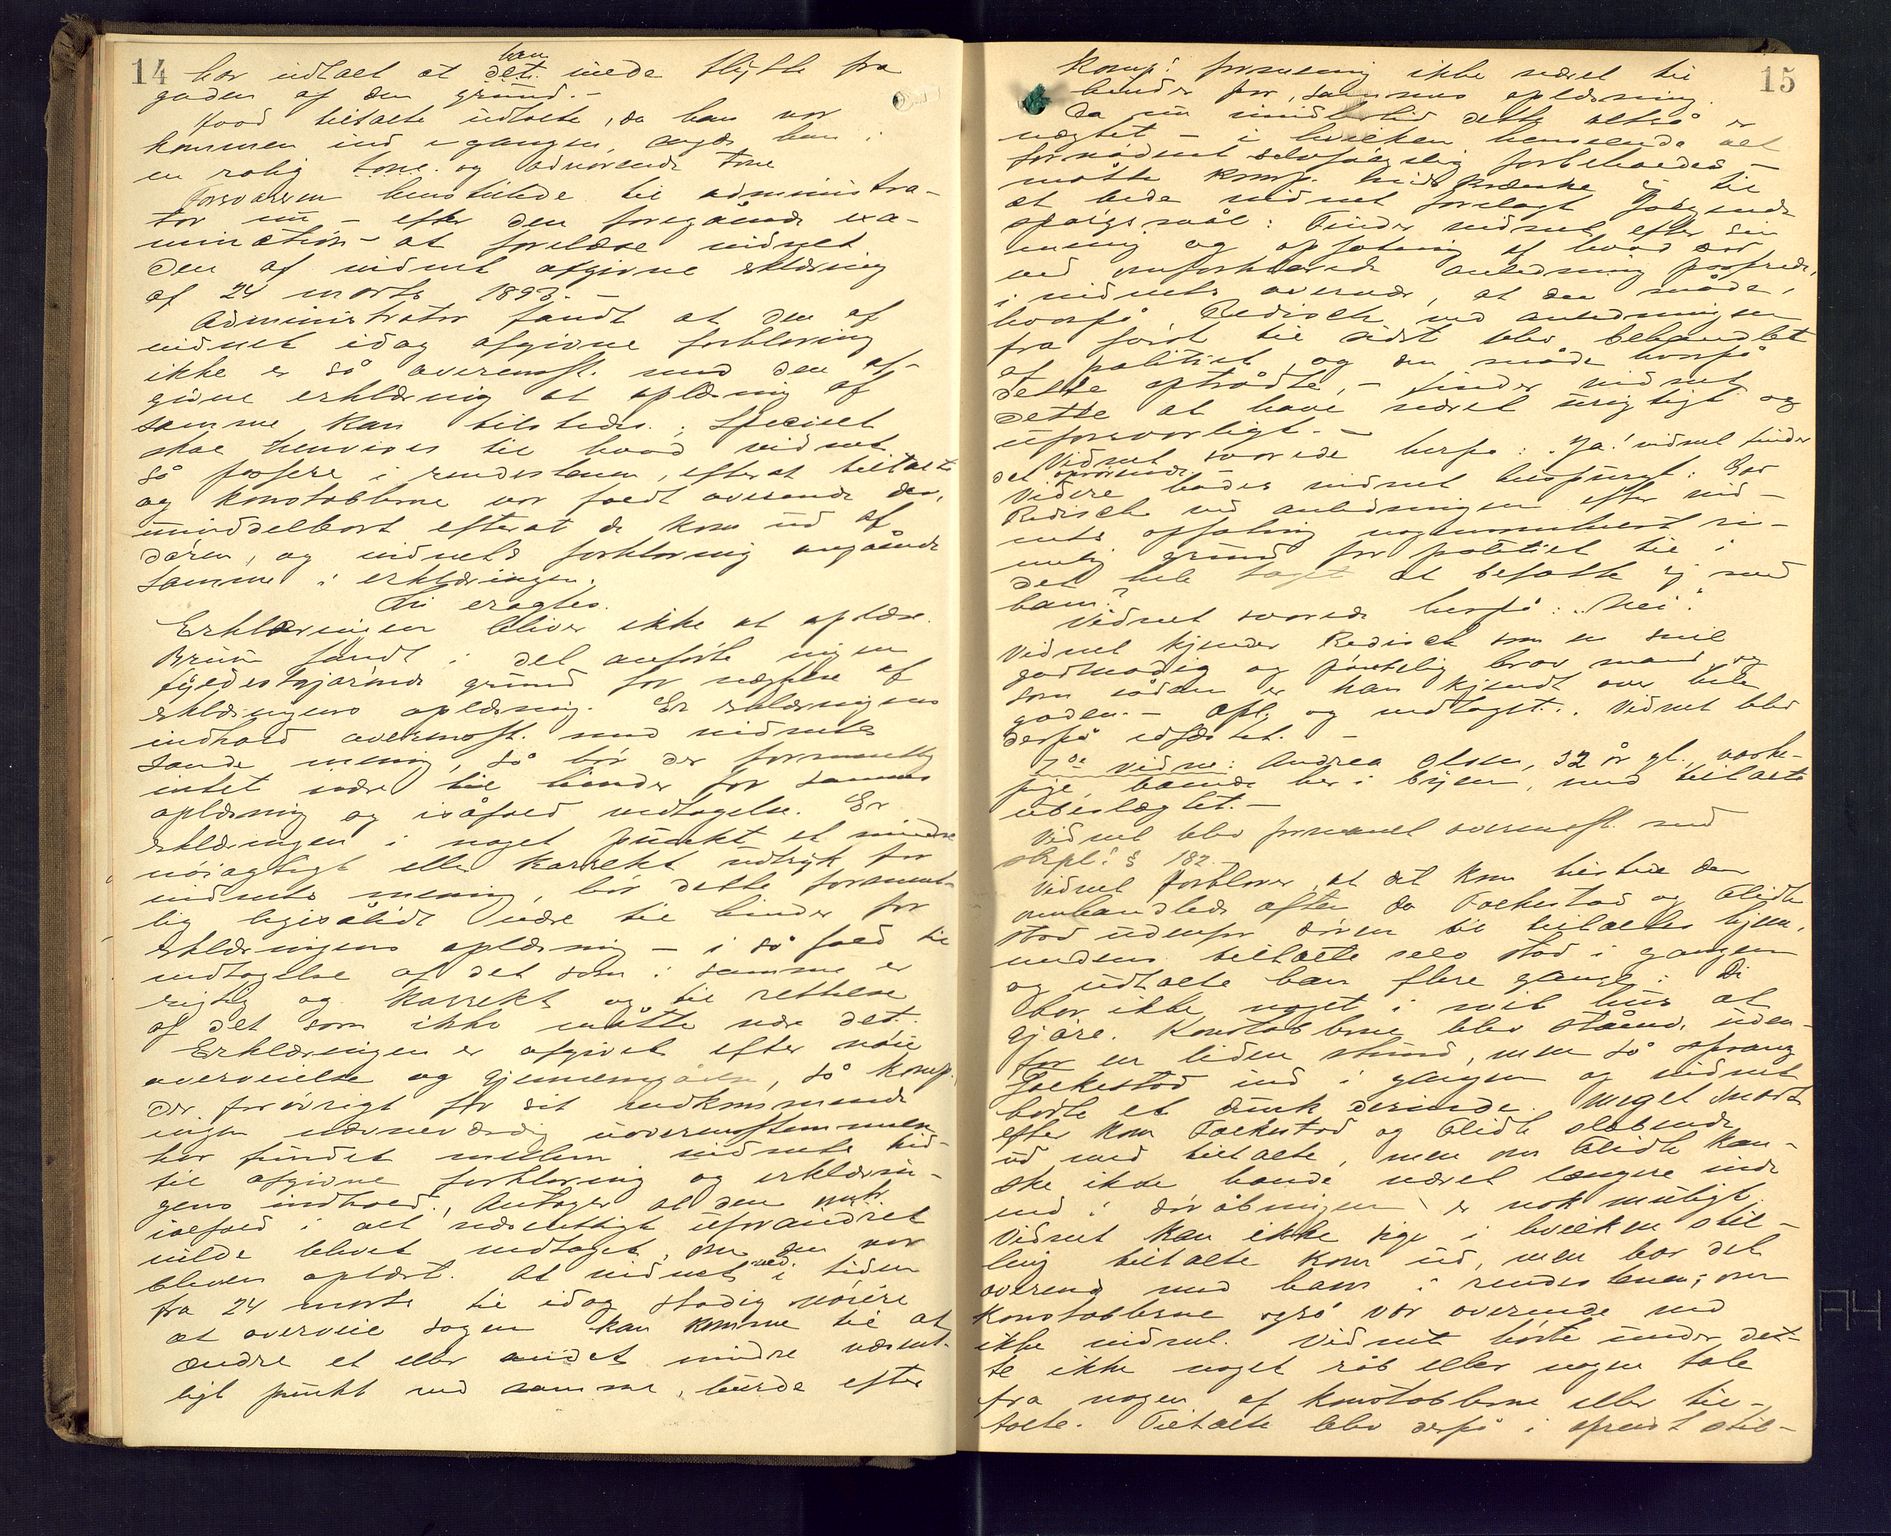 14
har udtalt at han vilde flytte fra
gaden af den grund. -
Hvad tiltalte udtalte, da han var
kommen ind i gangen, angår han i
en rolig tone og advarende tone
Forsvareren henstillede til administra-
tor nu - efter den foregående exa-
mination - at forelæse vidnet
den af vidnet afgivne erklæring
af 24 marts 1893. -
Administrator fandt at den af
vidnet idag afgivne forklaring
ikke er så overensst. med den af-
givne erklæring at oplæsning af
samme kan tilstedes. Specielt
skal henvises til hvad vidnet
så passere i rendestenen, efterat tiltalte
og konstablerne var faldt overende der,
umiddelbart efterat de kom ud af
døren, og vidnets forklaring angående
samme i erklæringen.
Thi eragtes.
Erklæringen bliver ikke at oplæse.
Bruun fandt i det anførte ingen
fyldestgjørende grund for nægtelse af
erklæringens oplæsning. Er erklæringens
indhold overensst. med vidnets
sande mening, så bør der formentlig
intet være til hinder for sammes
oplæsning og isåfald vedtagelse. Er
erklæringen i noget punkt et mindre
nøiagtigt eller korrekt udtryk for
vidnets mening, bør dette forment-
lig ligesålidt være til hinder for
erklæringens oplæsning - i så fald til
vedtagelse af det som i samme er
rigtig og korrekt og til rettelse
af det som ikke måtte være det.
Erklæringen er afgivet efter nøie
overveielse og gjennemgåelse, så komp.
der forøvrigt for sit vedkommende
ingen nævneværdig uoverensstemmelse
har fundet mellem vidnets hid-
til afgivne forklaring og erklærin-
gens indhold, antager at den
ialfald i alt væsentligt uforandret
vilde blevet vedtaget, om den var
bleven oplæst. At vidnet ved i tiden
fra 24 marts til idag stadig
at overveie sagen kan komme til at
ændre et eller andet mindre væsent-
ligt punkt ved samme, burde efter
15
komp.s formening ikke været til
hinder for sammes oplæsning.
Da nu imidlertid dette altså er
nægtet - i hvilken henseende alt
fornødent selvfølgelig forbeholdes -
måtte komp. indskrænke sig til
at bede vidnet forelagt følgende
spørgsmål: Finder vidnet efter sin
mening og opfatning af hvad der
ved omforklarede anledning passerede
i vidnets overvær, at den måde,
hvorpå Redisch ved anledningen
fra først til sidst blev behandlet
af politiet og den måde hvorpå
dette optrådte, - finder vidnet
dette at have været urigtigt og
uforsvarligt. -
Vidnet svarede herpå: "Ja! vidnet finder
det oprørende."
Videre bades vidnet bespurgt: Gav
Redisch ved anledningen efter vid-
nets opfatning nogensomhelst ri-
melig grund for politiet til i
det hele taget at befatte sig med
ham?
Vidnet svarede herpå: "Nei".
Vidnet kjender Redisch som en snil
godmodig og pøntelig brav mand og
som sådan er han kjendt over hele
gaden. - Opl. og vedtaget. Vidnet blev
derpå edfæstet. -
7de vidne: Andrea Olsen, 32 år gl., vaske-
pige, boende her i byen, med tiltalte
ubeslægtet. -
Vidnet blev formanet overensst. med
strpl.s § 182.
Vidnet forklarer, at det kom hertil den
omhandlede aften da Folkestad og Alidh
stod udenfor døren til tiltaltes hjem,
medens tiltalte selv stod i gangen
og udtalte han flere gange: "De
har ikke noget i mit hus at
gjøre. Konstablerne blev stående uden-
for en liden stund, men så sprang
Folkestad ind i gangen og vidnet
hørte et dunk derinde. Meget snart
efter kom Folkestad og Alidh slæbende
ud med tiltalte, men om Alidh kan-
ske ikke havde været længere inde
end i døråbningen er nok muligt.
Vidnet kan ikke sige i hvilken stil-
ling tiltalte kom ud, men bar det
overend med ham i rendestenen; om
konstablerne også var overende ved
ikke vidnet. Vidnet hørte under det-
te ikke noget råb eller nogen tale
fra nogen af konstablerne eller til-
talte. Tiltalte blev derpå i spændt stil-